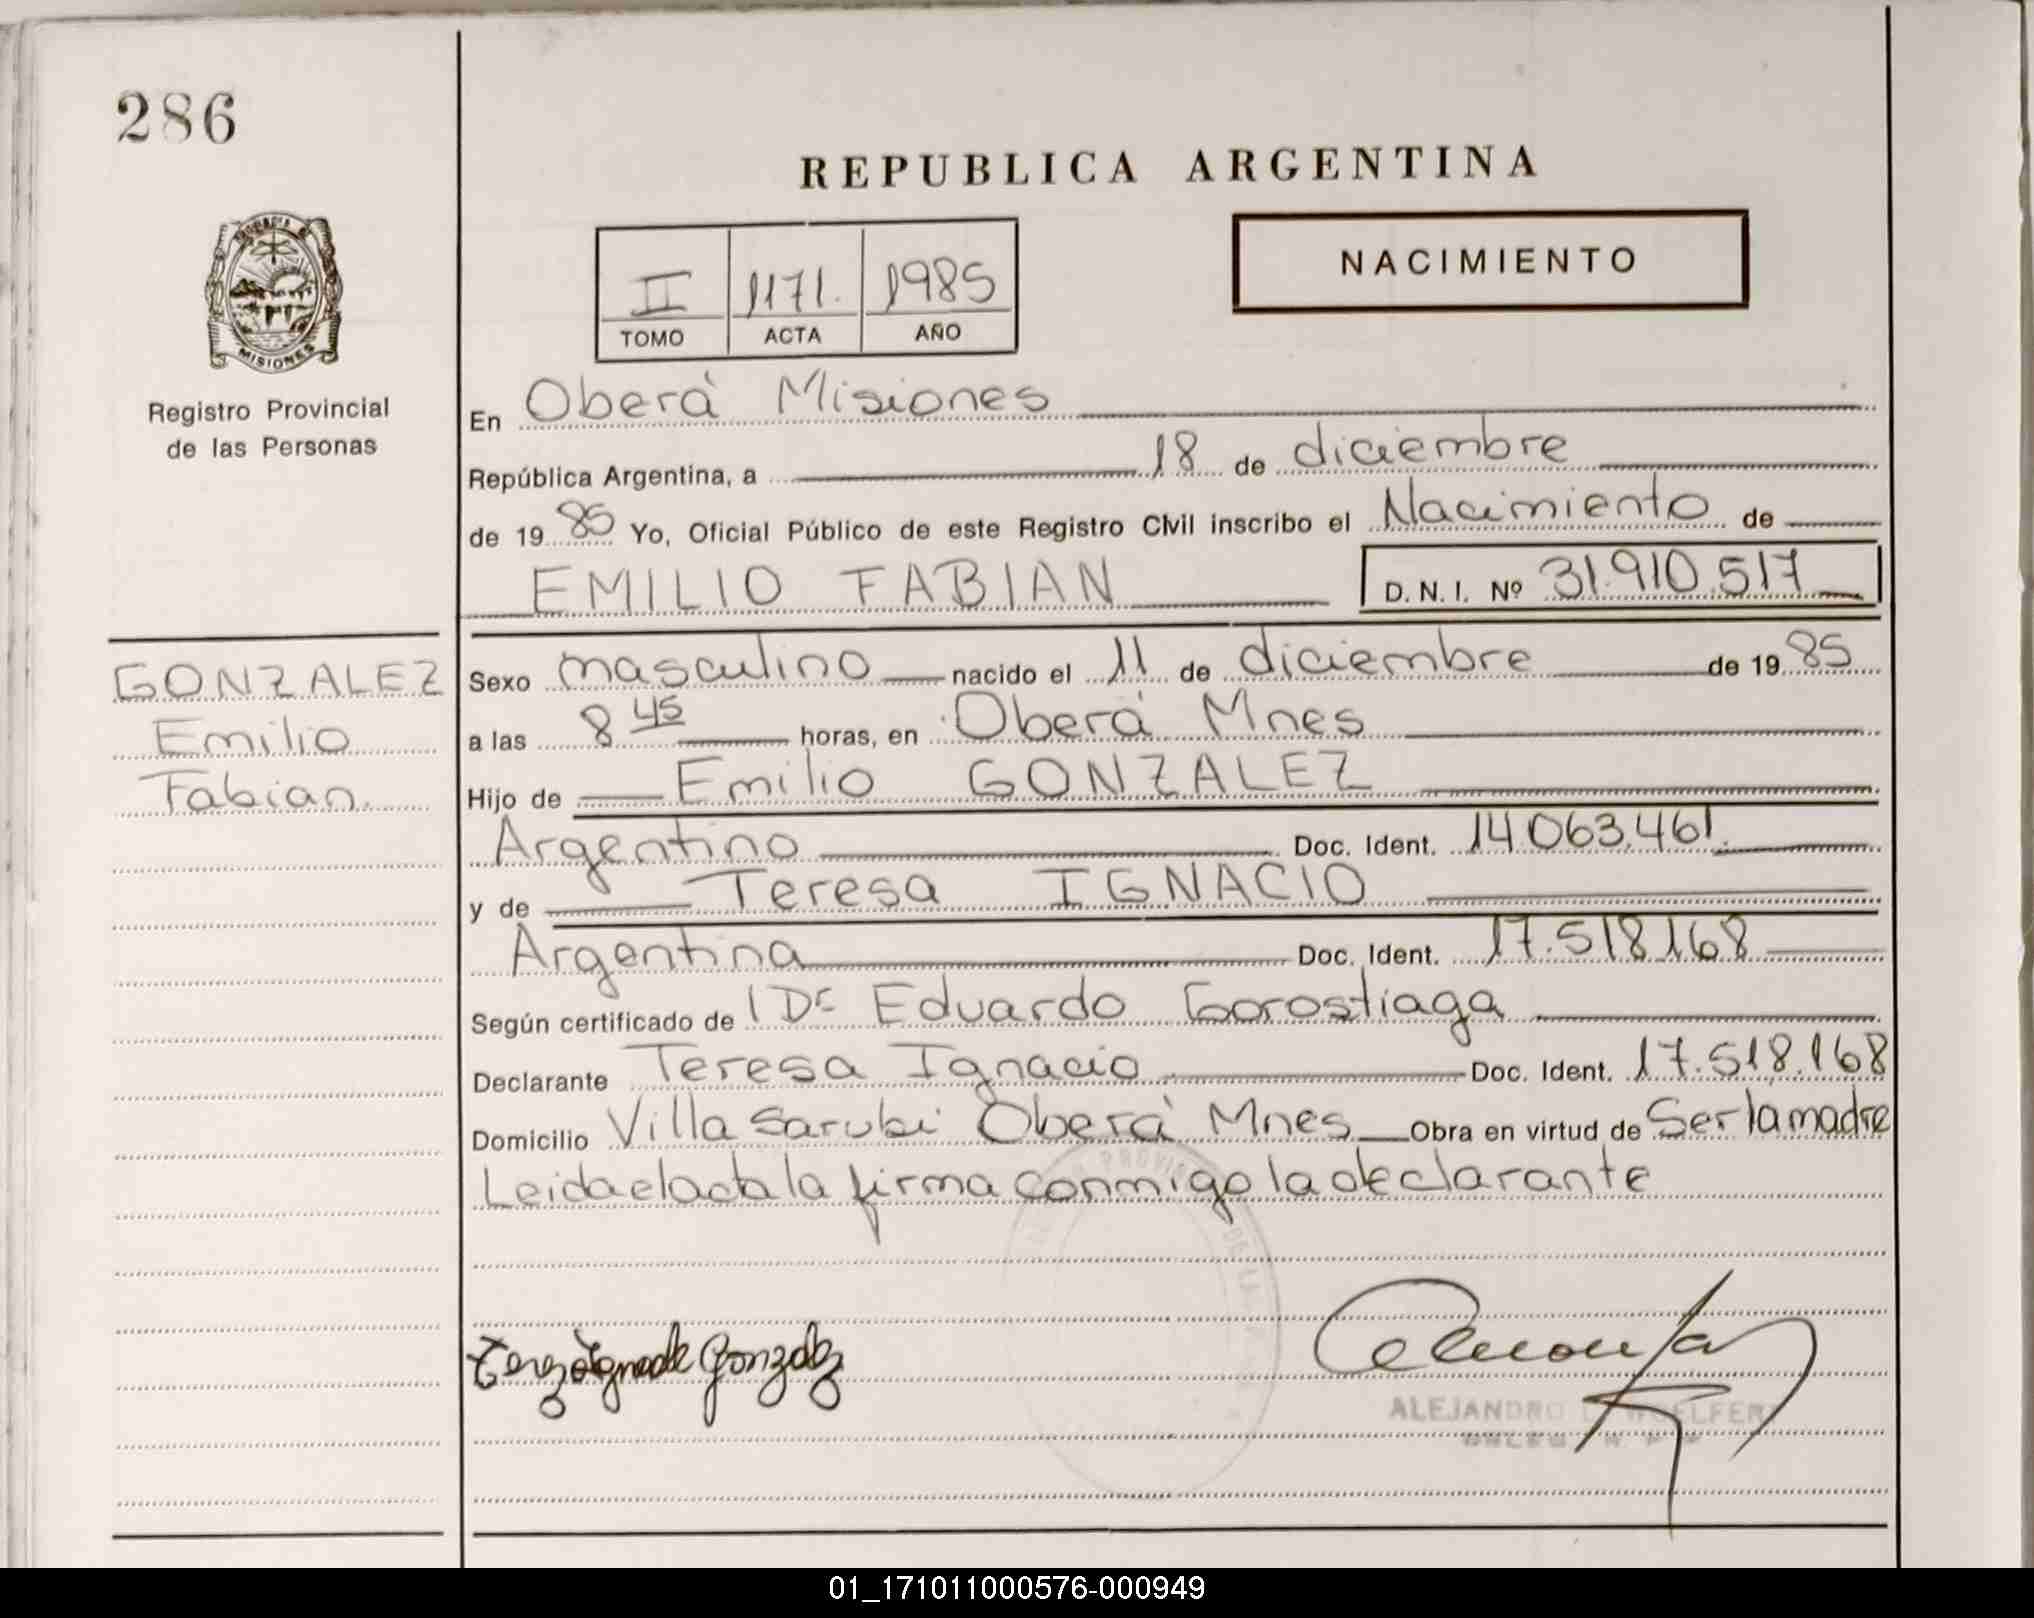 286
REPUBLICA ARGENTINA
NACIMIENTO
II 1171. 1985
TOMO ACTA AÑO
MISIONES
Registro Provincial
de las Personas
En Oberá Misiones
República Argentina, a 18 de diciembre
de 1985 Yo, Oficial Público de este Registro Civil inscribo el Nacimiento de
EMILIO FABIAN D. N. I. Nº 31.910.517
GONZALEZ
Emilio
Fabian
Sexo masculino nacido el 11 de diciembre de 1985
a las 8 45 horas, en Oberá Mnes
Hijo de Emilio GONZALEZ
Argentino Doc. Ident. 14.063.461
y de Teresa IGNACIO
Argentina Doc. Ident. 17.518.168
Según certificado de Eduardo Gorostiaga
Declarante Teresa Ignacio Doc. Ident. 17.518.168
Domicilio Villa Sarubi Oberá Mnes Obra en virtud de Ser la madre
Leida el acta la firma conmigo la declarante
ALEJANDRO
01_171011000576-000949